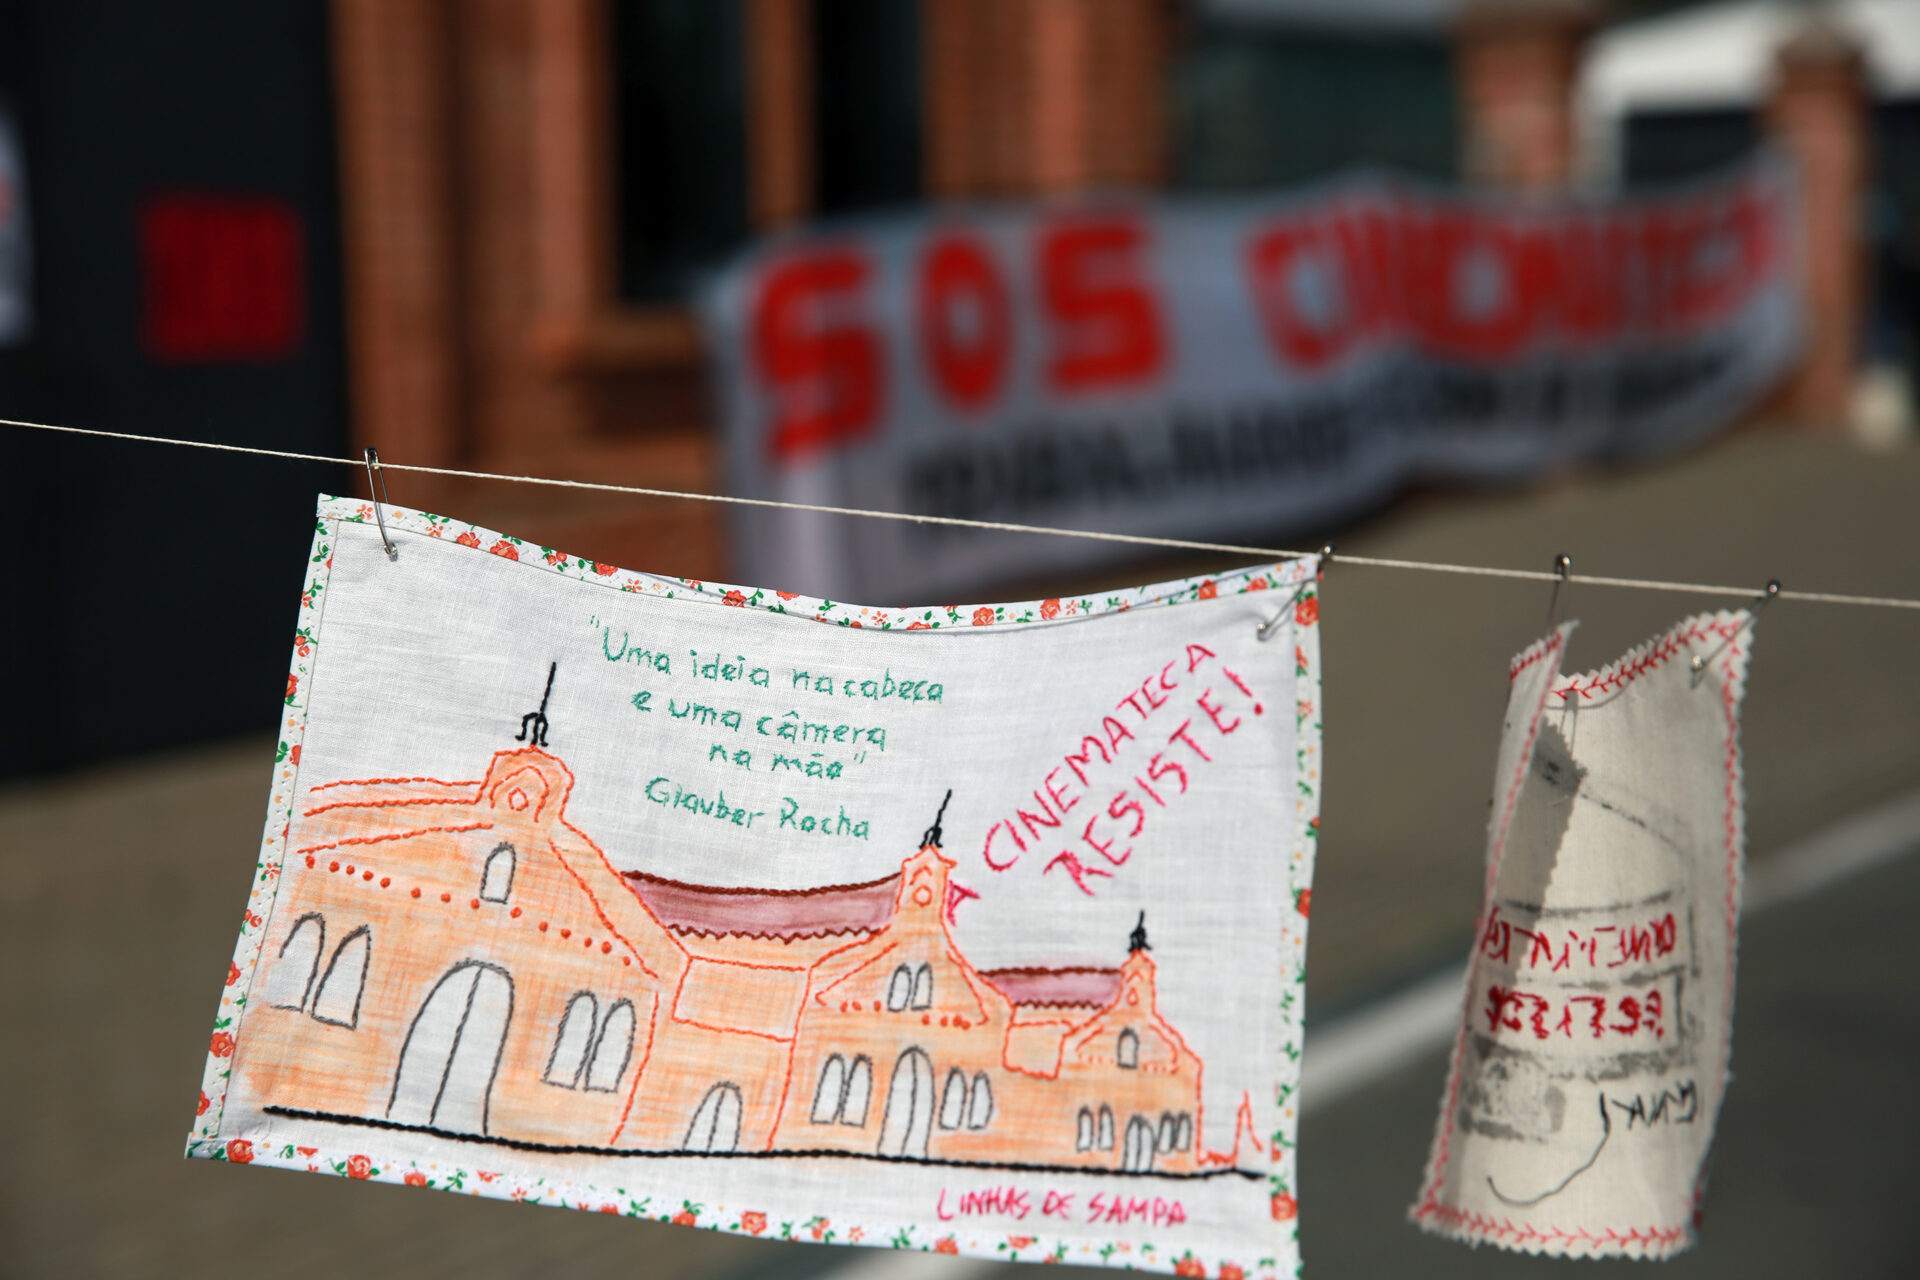 SOS CINEMATECA
"Uma ideia na cabeça
e uma câmera
na mão"
Glauber Rocha
A CINEMATECA
RESISTE!
LINHAS DE SAMPA